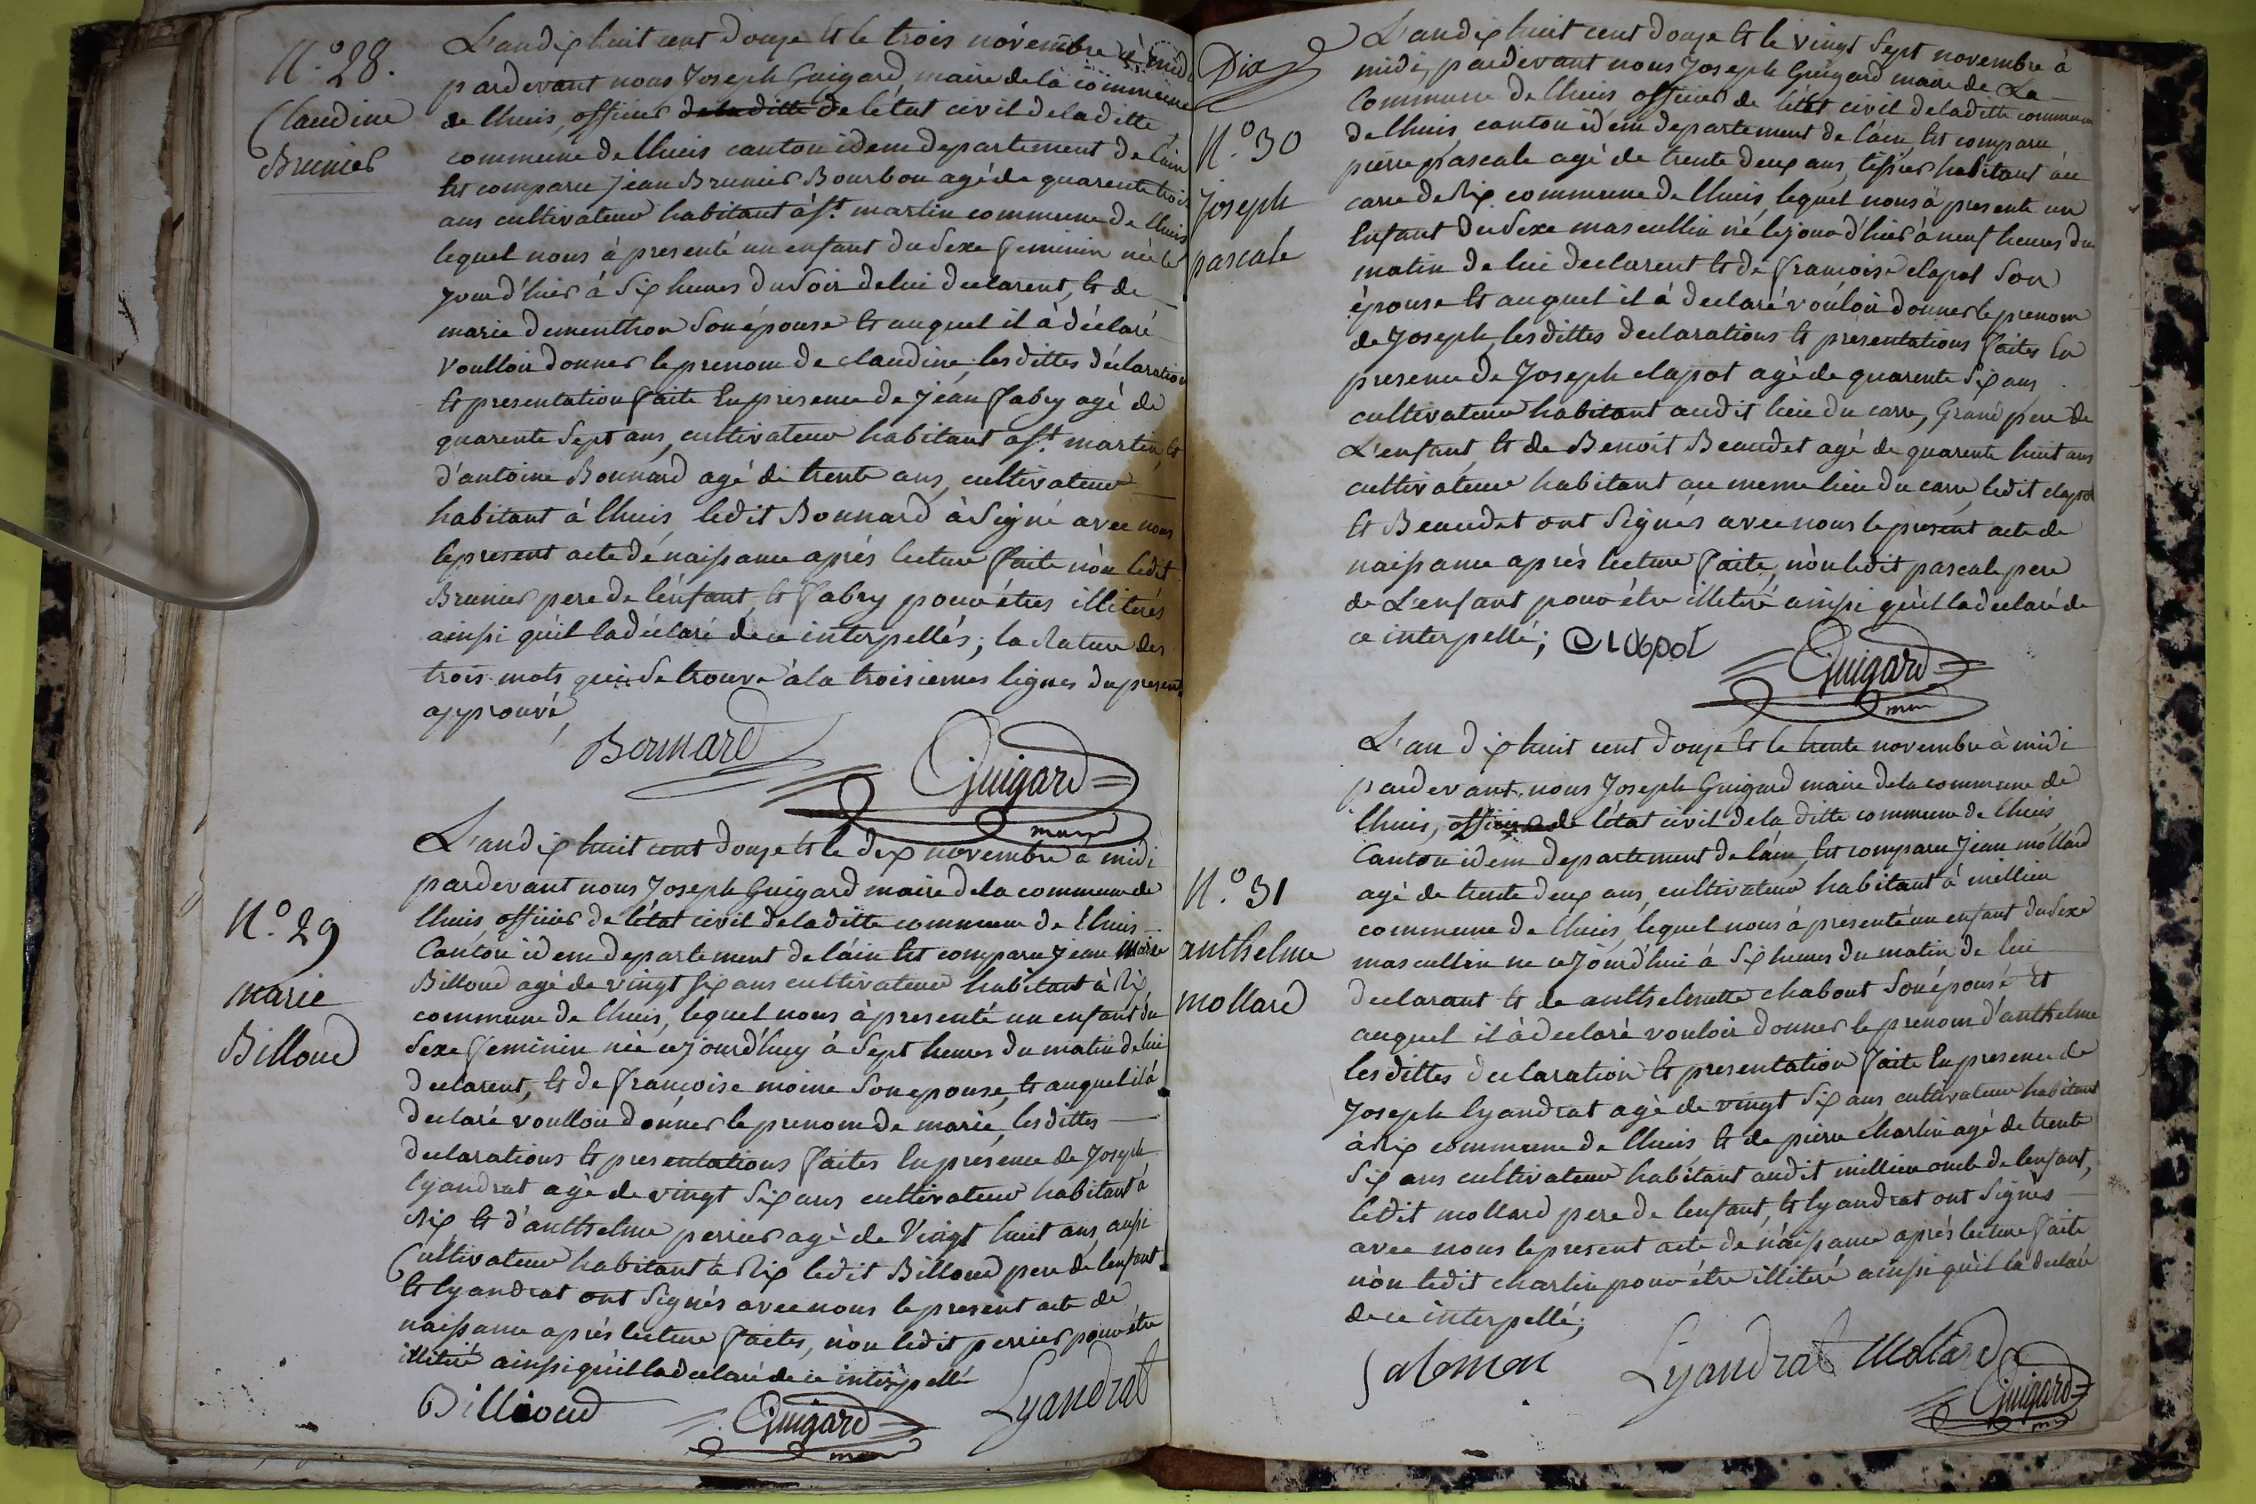 N.° 28.
Claudine
Brunier
L'an dix huit cent douze et le trois novembre à midi
pardevant nous Joseph Guigard maire de la commune
de lhuis, officier de la ditte de l'état civil de la ditte
commune de lhuis canton idem departement de l'ain
Est comparu jean Brunier Bourbon agé de quarente trois
ans cultivateur habitant à st. martin commune de lhuis
lequel nous à presenté un enfant du sexe feminin née le
jour d'hier à six heures du soir de lui declarent, et de
marie dementhon son épouse et auquel il à déclaré
voulloir donner le prenom de claudine, les dittes déclaration
et presentation faite En présence de jean fabry agé de
quarente sept ans, cultivateur habitant a st. martin, et
d'antoine Bonnard agé de trente ans, cultivateur
habitant à lhuis, ledit Bonnard à signé avec nous
le present acte de naissance après lecture faite non ledit
Brunier pere de l'enfant, et fabry pour êtres illiterés
ainsi qu'il la déclaré de ce interpellés; la Rature des
trois mots qui se trouve à la troisiemes lignes du present
approuvé,
Bonnard
Guigard
maire
N.° 29
marie
Billoud
L'an dix huit cent douze et le dix novembre à midi
pardevant nous Joseph Guigard maire de la commune de
lhuis, officier de l'état civil de la ditte commune de lhuis
Canton idem departement de l'ain Est comparu jean marie
Billoud agé de vingt six ans cultivateur habitant à Rix
commune de lhuis, lequel nous à presenté un enfant du
sexe feminin née ce jourd'huy à sept heures du matin de lui
declarent, et de francoise moine son epouse, et auquel il à
declaré voulloir donner le prenom de marie, les dittes
declarations et presentations faites En présence de Joseph
lyandrat agé de vingt six ans cultivateur habitant à
Rix et d'anthelme perrier agé de vingt huit ans, aussi
Cultivateur habitant à Rix ledit Billoud pere de lenfant
et lyandrat ont signés avec nous le present acte de
naissance après lecture faites, non ledit perrier pour être
illiteré ainsi qu'il la déclaré de ce interpellé
Billioud
Guigard
maire
Lyandrat
Dix
N.° 30
Joseph
pascale
L'an dix huit cent douze et le vingt sept novembre à
midi, pardevant nous Joseph Guigard maire de La
Commune de lhuis, officier de l'état civil de la ditte commune
de lhuis, canton idem departement de l'ain, Est comparu
pierre pascale agé de trente deux ans, tissier habitant au
carre de Rix commune de lhuis, lequel nous à presenté un
Enfant du sexe mascullin né le jour d'hier à neuf heures du
matin de lui declarent et de francoise clapot son
épouse et auquel il à declaré vouloir donner le prenom
de Joseph, les dittes declarations et presentations faites En
presence de Joseph clapot agé de quarente six ans
cultivateur habitant audit lieu du carre, Grand pere de
L'enfant, et de Benoit Beaudet agé de quarente huit ans
cultivateur habitant au meme lieu du carre, ledit clapot
et Beaudet ont signés avec nous le present acte de
naissance après lecture faite, non ledit pascale pere
de L'enfant pour être illiteré ainsi qu'il la declaré de
ce interpellé; Clapot
Guigard
maire
N.° 31
anthelme
mollard
L'an dix huit cent douze et le trente novembre à midi
pardevant nous Joseph Guigard maire de la commune de
lhuis, officier de l'état civil de la ditte commune de lhuis,
Canton idem departement de l'ain, Est comparu jean mollard
agé de trente deux ans, cultivateur habitant à millieu
commune de lhuis, lequel nous à presenté un enfant du sexe
mascullin ne ce jourd'hui à six heures du matin de lui
declarant et de anthelmette chabout son épouse et
auquel il à declaré vouloir donner le prenom d'anthelme
les dittes declaration et presentation faite En presence de
Joseph lyandrat agé de vingt six ans, cultivateur habitant
à Rix commune de lhuis et de pierre charlin agé de trente
six ans cultivateur habitant audit millieu oncle de lenfant,
ledit mollard pere de lenfant, et lyandrat ont signés
avec nous le present acte de naissance après lecture faite
non ledit charlin pour être illiteré ainsi qu'il la declaré
de ce interpellé;
Salomon
Lyandrat
Mollard
Guigard
maire